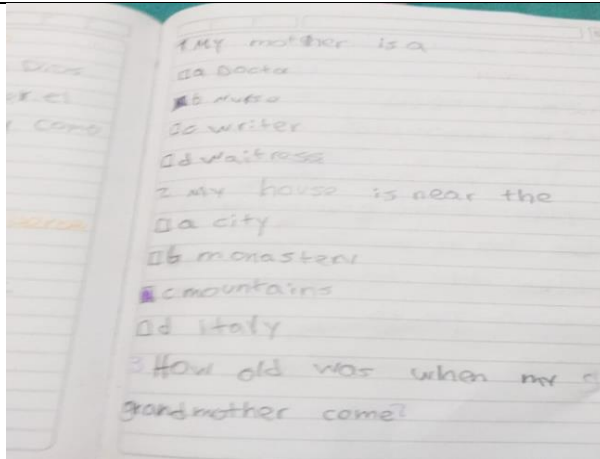 1 MY mother is a
a Docta
b nurse
c writer
d waitrose
2 my house is near the
a city
b monastery
c mountains
d italy
3 How old was when my
grandmother come?
como